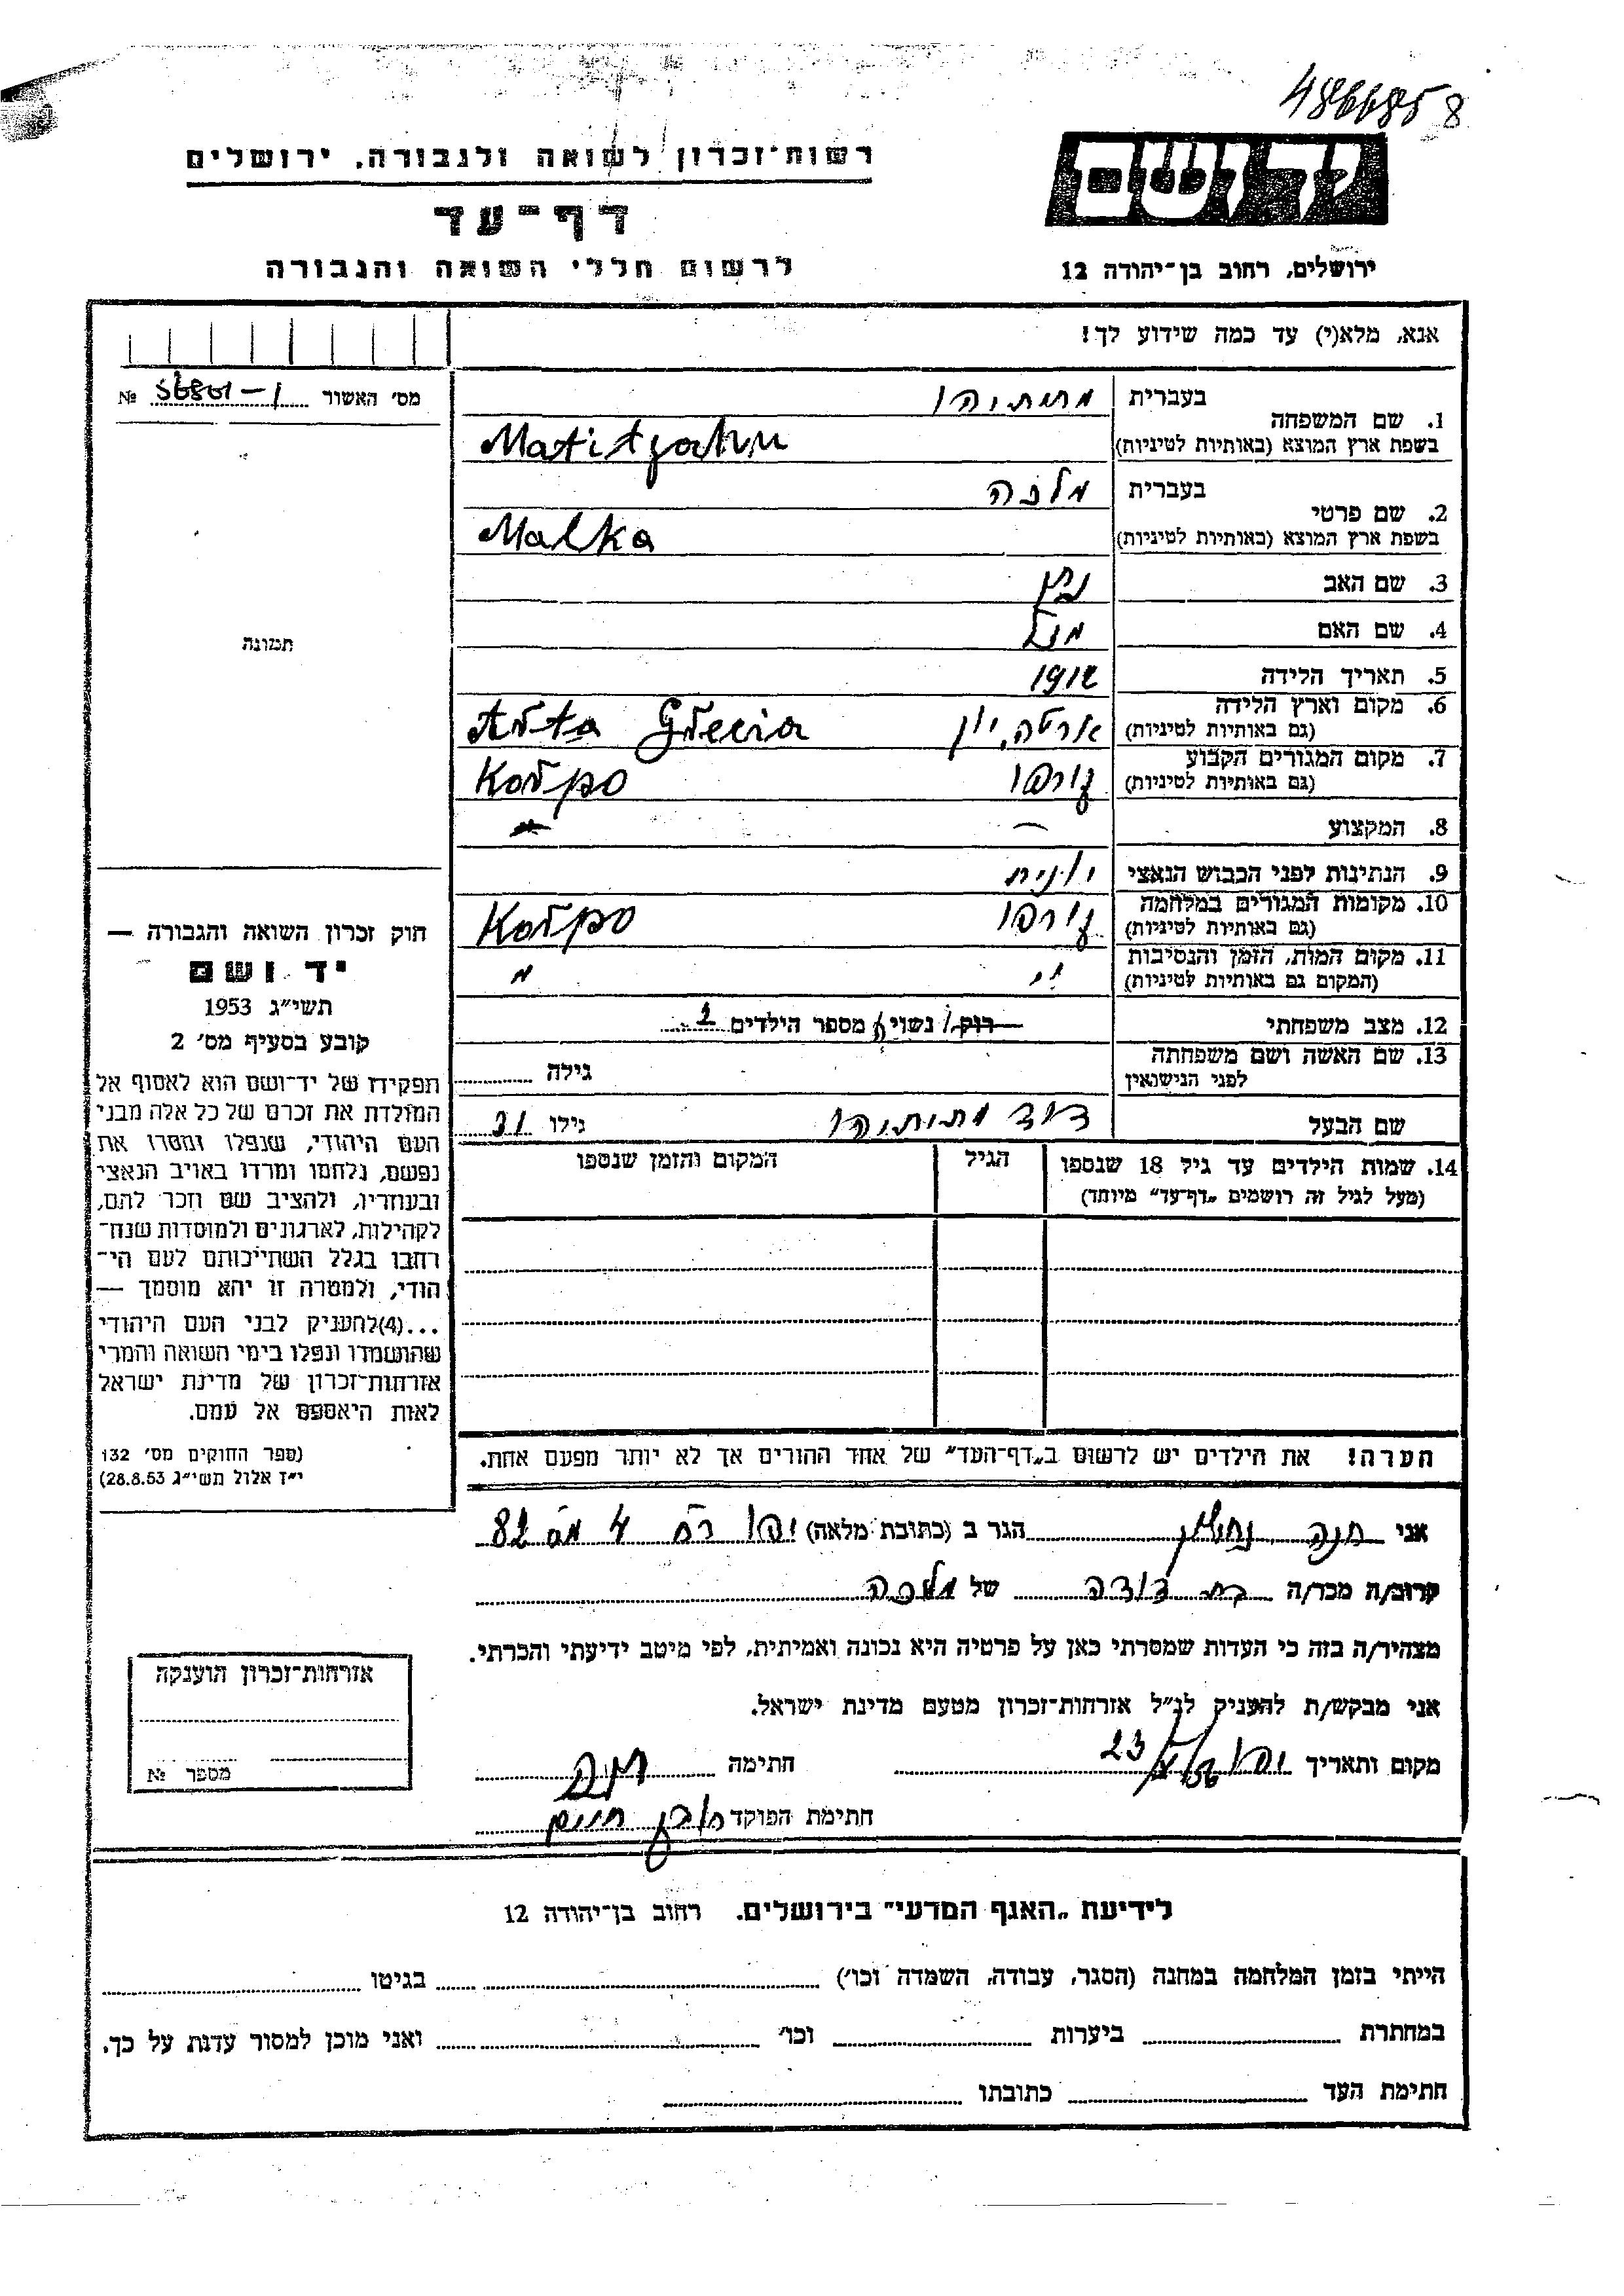 4866858
יד ושם
רשות־זכרון לשואה ולגבורה, ירושלים
דף־עד
לרשום חללי השואה והגבורה
ירושלים, רחוב בן־יהודה 12
אנא, מלא(י) עד כמה שידוע לך!
מס׳ האשור № 
1. שם המשפחה בעברית מתתיהו
בשפת ארץ המוצא (באותיות לטיניות) Matityahu
2. שם פרטי בעברית מלכה
בשפת ארץ המוצא (באותיות לטיניות) Malka
3. שם האב נתן
4. שם האם
5. תאריך הלידה 1912
6. מקום וארץ הלידה (גם באותיות לטיניות) ארטה, יון Arta Grecia
7. מקום המגורים הקבוע (גם באותיות לטיניות) קורפו Korpo
8. המקצוע —
9. הנתינות לפני הכבוש הנאצי יונית
10. מקומות המגורים במלחמה (גם באותיות לטיניות) קורפו Korpo
11. מקום המות, הזמן והנסיבות (המקום גם באותיות לטיניות)
12. מצב משפחתי רוק/ נשוי/ מספר הילדים
13. שם האשה ושם משפחתה לפני הנישואין גילה
שם הבעל דוד מתתיהו גילו 31
14. שמות הילדים עד גיל 18 שנספו הגיל המקום והזמן שנספו
(מעל לגיל זה רושמים „דף־עד״ מיוחד)
הערה! את הילדים יש לרשום ב„דף־העד״ של אחד ההורים אך לא יותר מפעם אחת.
תמונה
חוק זכרון השואה והגבורה —
יד ושם
תשי״ג 1953
קובע בסעיף מס׳ 2
תפקידו של יד־ושם הוא לאסוף אל
המולדת את זכרם של כל אלה מבני
העם היהודי, שנפלו ומסרו את
נפשם, נלחמו ומרדו באויב הנאצי
ובעוזריו, ולהציב שם וזכר להם,
לקהילות, לארגונים ולמוסדות שנח־
רחבו בגלל השתייכותם לעם הי־
הודי, ולמטרה זו יהא מוסמך —
...(4)להעניק לבני העם היהודי
שהושמדו ונפלו בימי השואה והמרי
אזרחות־זכרון של מדינת ישראל
לאות היאספם אל עמם.
(ספר החוקים מס׳ 132
י״ז אלול תשי״ג 28.8.53)
אני חנה הגר ב (כתובת מלאה) יפו רח 4 מס 82
קרוב/ה מכר/ה בת דודה של מלכה
מצהיר/ה בזה כי העדות שמסרתי כאן על פרטיה היא נכונה ואמיתית, לפי מיטב ידיעתי והכרתי.
אני מבקש/ת להעניק לנ״ל אזרחות־זכרון מטעם מדינת ישראל.
מקום ותאריך יפו 23 חתימה חנה
חתימת הפוקד
אזרחות־זכרון הוענקה
מספר №
לידיעת „האגף המדעי״ בירושלים. רחוב בן־יהודה 12
הייתי בזמן המלחמה במחנה (הסגר, עבודה, השמדה וכו׳) בגיטו
במחתרת ביערות וכו׳ ואני מוכן למסור עדות על כך.
חתימת העד כתובתו